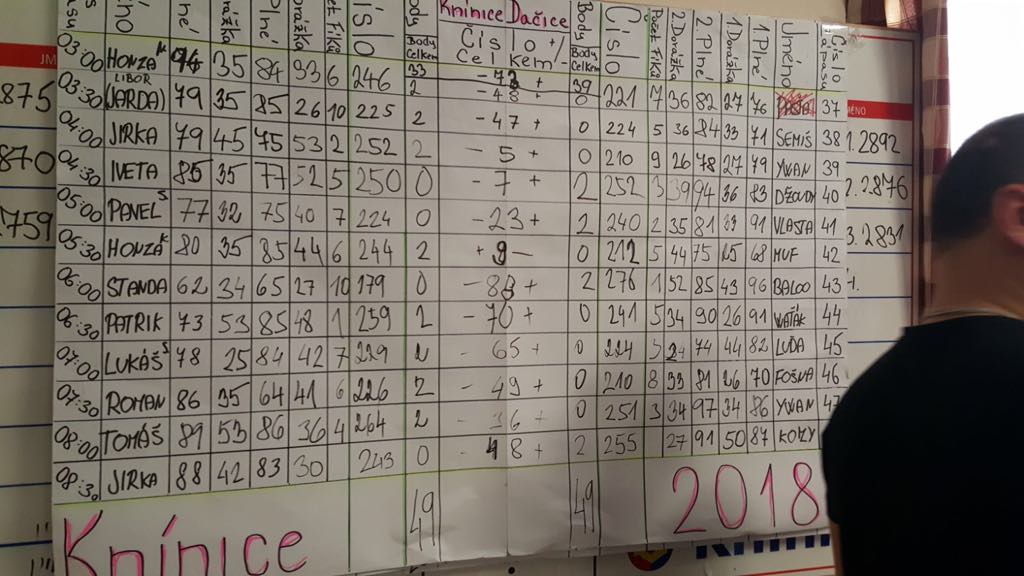 Kninice Dačice
Body Číslo +/ Body Číslo Počet Fika 2 Dorážka 2. Plné 1 Dorážka 1 Plné Jméno Číslo
Body Celkem Celkem /- Body Celkem
03:00 HONZA K 94 35 84 93 6 246 33 39
03:30 LIBOR (JARDA) 79 35 85 26 10 225 2 - 48 + 0 221 7 36 82 27 76 37
04:00 JIRKA 79 45 75 53 2 252 2 - 47 + 0 224 5 36 84 33 71 SEMIŠ 38
04:30 IVETA 86 35 77 52 5 250 2 - 5 + 0 210 9 26 78 27 79 YVAN 39
05:00 PAVEL S 77 32 75 40 7 224 0 - 7 + 2 252 3 39 94 36 83 40
05:30 HONZA K 80 35 85 44 6 244 0 - 23 + 2 240 2 35 81 33 91 VLASTA 41
06:00 STANDA 62 34 65 27 10 179 2 + 9 - 0 212 5 44 75 25 68 MUF 42
06:30 PATRIK 73 53 85 48 1 259 0 - 88 + 2 276 1 52 85 43 96 BALOO 43
07:00 LUKÁŠ S 78 25 84 42 7 229 2 - 70 + 0 241 5 34 90 26 91 VAŤÁK 44
07:30 ROMAN 86 35 64 41 6 226 2 - 65 + 0 224 74 44 82 LUDA 45
08:00 TOMÁŠ 89 53 86 36 4 264 2 - 49 + 0 210 8 33 81 26 70 FOŠNA 46
08:30 JIRKA 88 42 83 30 243 2 - 36 + 0 251 3 34 97 34 86 YVAN 47
0 - 48 + 2 255 27 91 50 87 KOZY
49 41 49 41
Kninice 2018
875
870
.759
JM
MÉNO
1. 2892
2. 2876
3. 2831